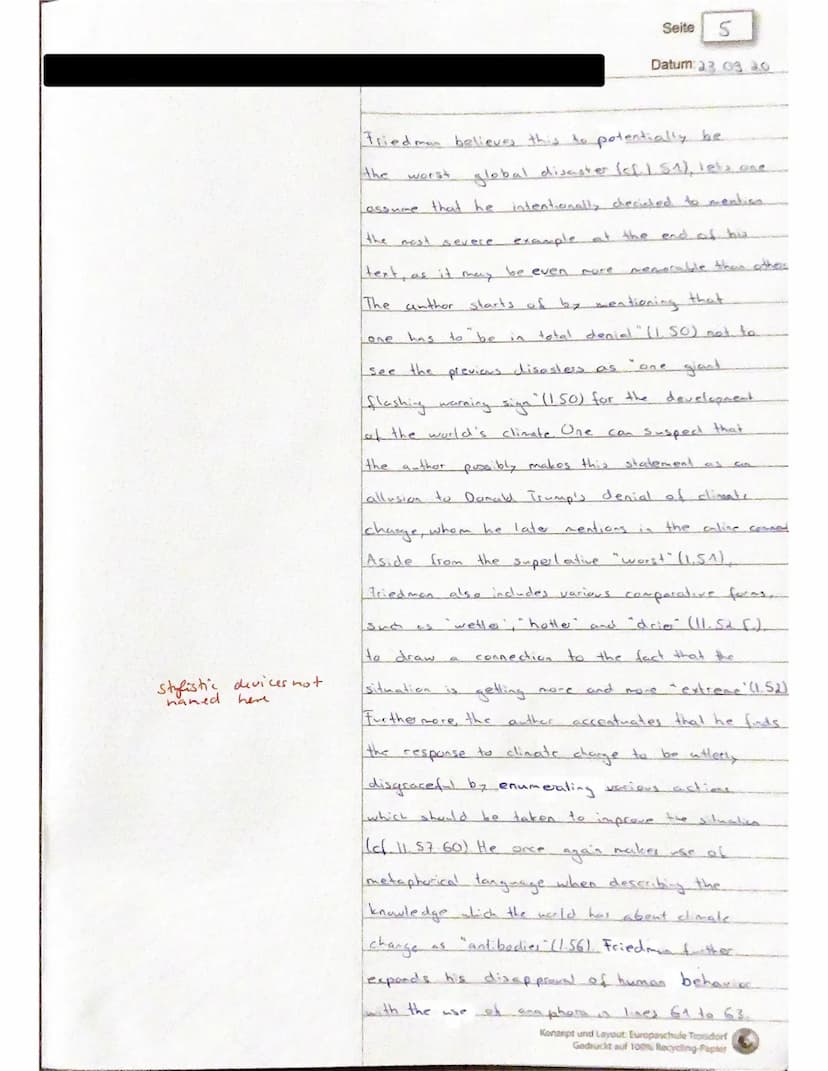 Seite 5
Datum: 23.09.20
Friedman believes this to potentially be
the worst global disaster (cf. l 51), lets one
assume that he intentionally decided to mention
the most severe example at the end of his
text, as it may be even more memorable than other
The author starts of by mentioning that
one has to "be in total denial" (l. 50) not to
see the previous disasters as "one giant
flashing warning sign" (l 50) for the development
of the world's climate. One can suspect that
the author possibly makes this statement as an
allusion to Donald Trump's denial of climate
change, whom he later mentions in the online
Aside from the superlative "worst" (l. 51),
Friedman also includes various comparative forms,
such as "wetter", "hotter" and "drier" (ll. 52 f.),
to draw a connection to the fact that the
stylistic devices not
named here
situation is getting more and more "extreme" (l. 52)
Furthermore, the author accentuates that he finds
the response to climate change to be utterly
disgraceful by enumerating various actions
which should be taken to improve the situation
(cf. ll. 57-60) He once again makes use of
metaphorical language when describing the
knowledge which the world has about climate
change as "antibodies" (l. 56). Friedman further
expands his disapproval of human behavior
with the use of anaphora in lines 61 to 63.
Konzept und Layout: Europaschule Troisdorf
Gedruckt auf 100% Recycling-Papier